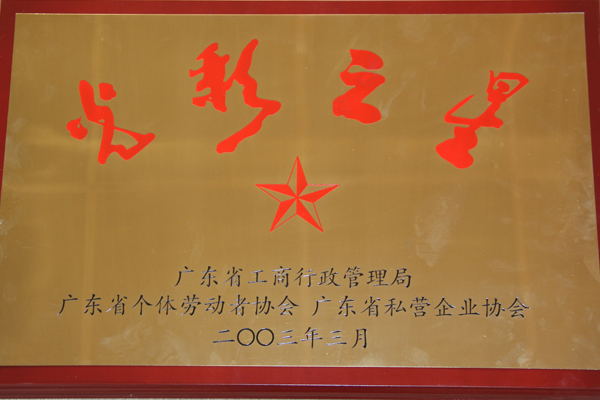 光彩之星
广东省工商行政管理局
广东省个体劳动者协会 广东省私营企业协会
二〇〇三年三月